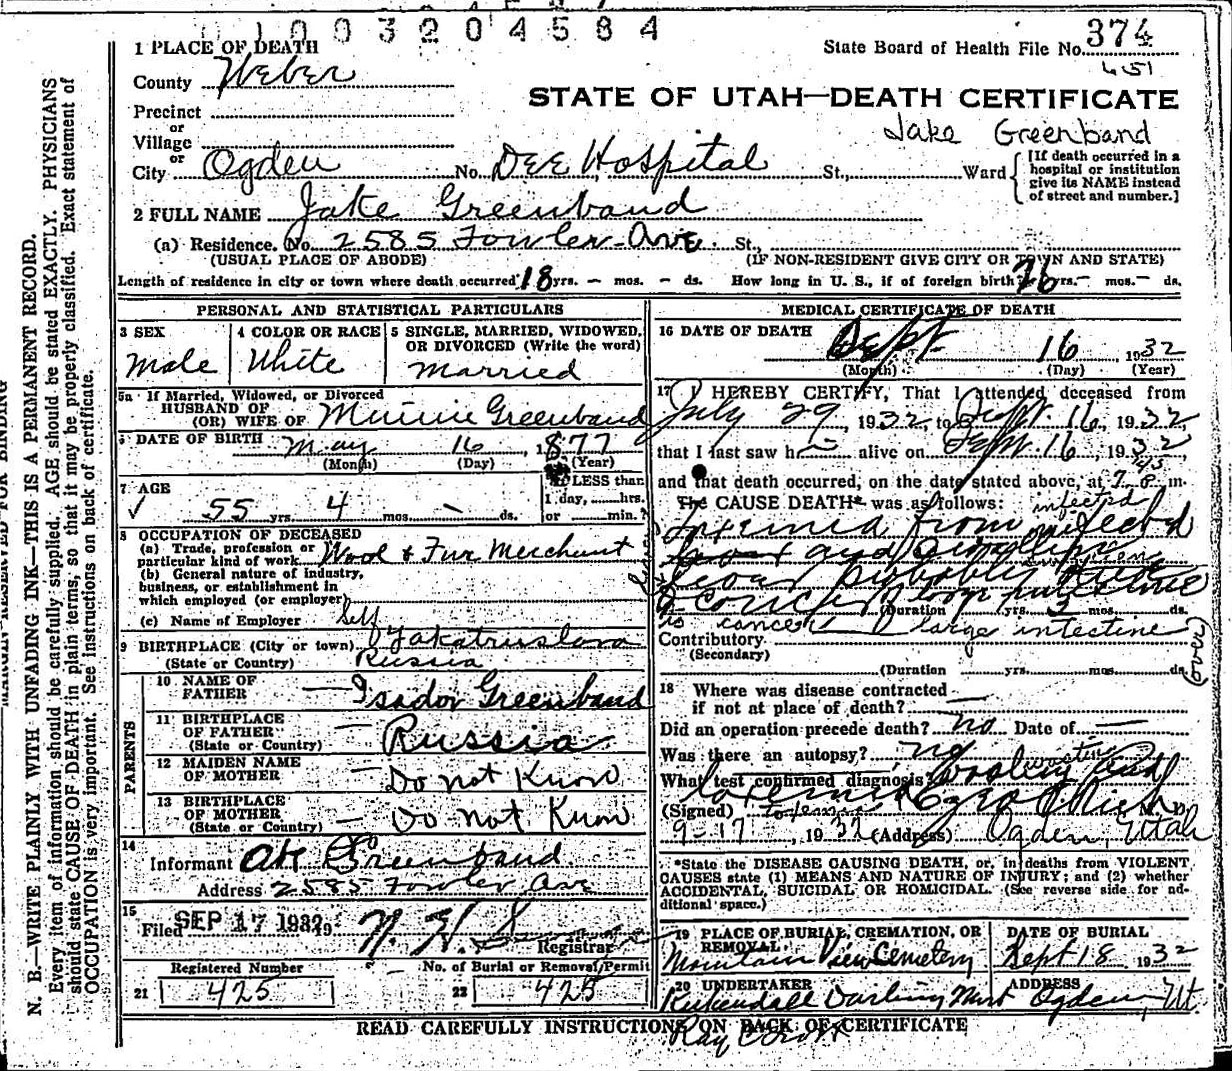 0 1 0 0 3 2 0 4 5 8 4
1 PLACE OF DEATH
State Board of Health File No. 374
451
County Weber
STATE OF UTAH—DEATH CERTIFICATE
Precinct
or
Jake Greenband
Village
or
City Ogden No. Dee Hospital St., Ward
[If death occurred in a hospital or institution give its NAME instead of street and number.]
2 FULL NAME Jake Greenband
(a) Residence. No. 2585 Fowler Ave. St.,
(USUAL PLACE OF ABODE) (IF NON-RESIDENT GIVE CITY OR TOWN AND STATE)
Length of residence in city or town where death occurred 18 yrs. – mos. – ds. How long in U. S., if of foreign birth? 26 yrs. – mos. – ds.
PERSONAL AND STATISTICAL PARTICULARS
3 SEX Male
4 COLOR OR RACE White
5 SINGLE, MARRIED, WIDOWED, OR DIVORCED (Write the word) Married
5a If Married, Widowed, or Divorced
HUSBAND OF
(OR) WIFE OF Minnie Greenband
6 DATE OF BIRTH May 16, 1877
(Month) (Day) (Year)
7 AGE 55 yrs. 4 mos. – ds.
If LESS than 1 day, hrs. or min.?
8 OCCUPATION OF DECEASED
(a) Trade, profession or particular kind of work Wool & Fur Merchant
(b) General nature of industry, business, or establishment in which employed (or employer)
(c) Name of Employer Self
9 BIRTHPLACE (City or town)
(State or Country) Russia
PARENTS
10 NAME OF FATHER — Isador Greenband
11 BIRTHPLACE OF FATHER — Russia
(State or Country)
12 MAIDEN NAME OF MOTHER — Do not Know
13 BIRTHPLACE OF MOTHER — Do not Know
(State or Country)
14 Informant Abe Greenband
Address 2585 Fowler Ave
15 Filed SEP 17 1932, 19 N. H. S Registrar
Registered Number
No. of Burial or Removal Permit
21 425
22 425
MEDICAL CERTIFICATE OF DEATH
16 DATE OF DEATH Sept 16, 1932
(Month) (Day) (Year)
17 I HEREBY CERTIFY, That I attended deceased from
July 29, 1932, to Sept. 16, 1932,
that I last saw h alive on Sept. 16, 1932
and that death occurred, on the date stated above, at 7 45 P. m.
The CAUSE DEATH* was as follows: infected
Toxemia from infected
and
probably
(Duration yrs. mos. ds.
is cancer large intestine
Contributory
(Secondary)
(over)
(Duration yrs. mos. ds.
18 Where was disease contracted
if not at place of death? —
Did an operation precede death? no Date of —
Was there an autopsy? no
wasting
What test confirmed diagnosis? wasting and
(Signed) toxemia Ezra C Rich M.D.
9-17, 1932 (Address) Ogden, Utah
*State the DISEASE CAUSING DEATH, or, in deaths from VIOLENT CAUSES state (1) MEANS AND NATURE OF INJURY; and (2) whether ACCIDENTAL, SUICIDAL OR HOMICIDAL. (See reverse side for additional space.)
19 PLACE OF BURIAL, CREMATION, OR REMOVAL. Mountain View Cemetery
DATE OF BURIAL Sept 18 1932
20 UNDERTAKER Kirkendall Darling Mort
ADDRESS Ogden, Ut.
READ CAREFULLY INSTRUCTIONS ON BACK OF CERTIFICATE
Ray
N. B.—WRITE PLAINLY WITH UNFADING INK—THIS IS A PERMANENT RECORD.
Every item of information should be carefully supplied. AGE should be stated EXACTLY. PHYSICIANS
should state CAUSE OF DEATH in plain terms, so that it may be properly classified. Exact statement of
OCCUPATION is very important. See instructions on back of certificate.